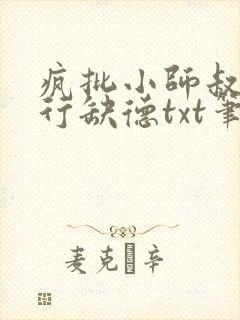 疯批小师叔
行缺德txt笔
麦克 辛